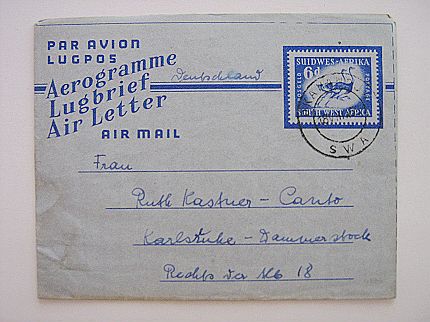 PAR AVION
LUGPOS
Aerogramme
Lugbrief
Air Letter
AIR MAIL
Deutschland
SUIDWES-AFRIKA
6d
POSGELD
POSTAGE
SOUTH WEST AFRICA
SWA
Frau
Ruth Kastner-Canto
Karlsruhe-Dammerstock
Rechts der Alb 18